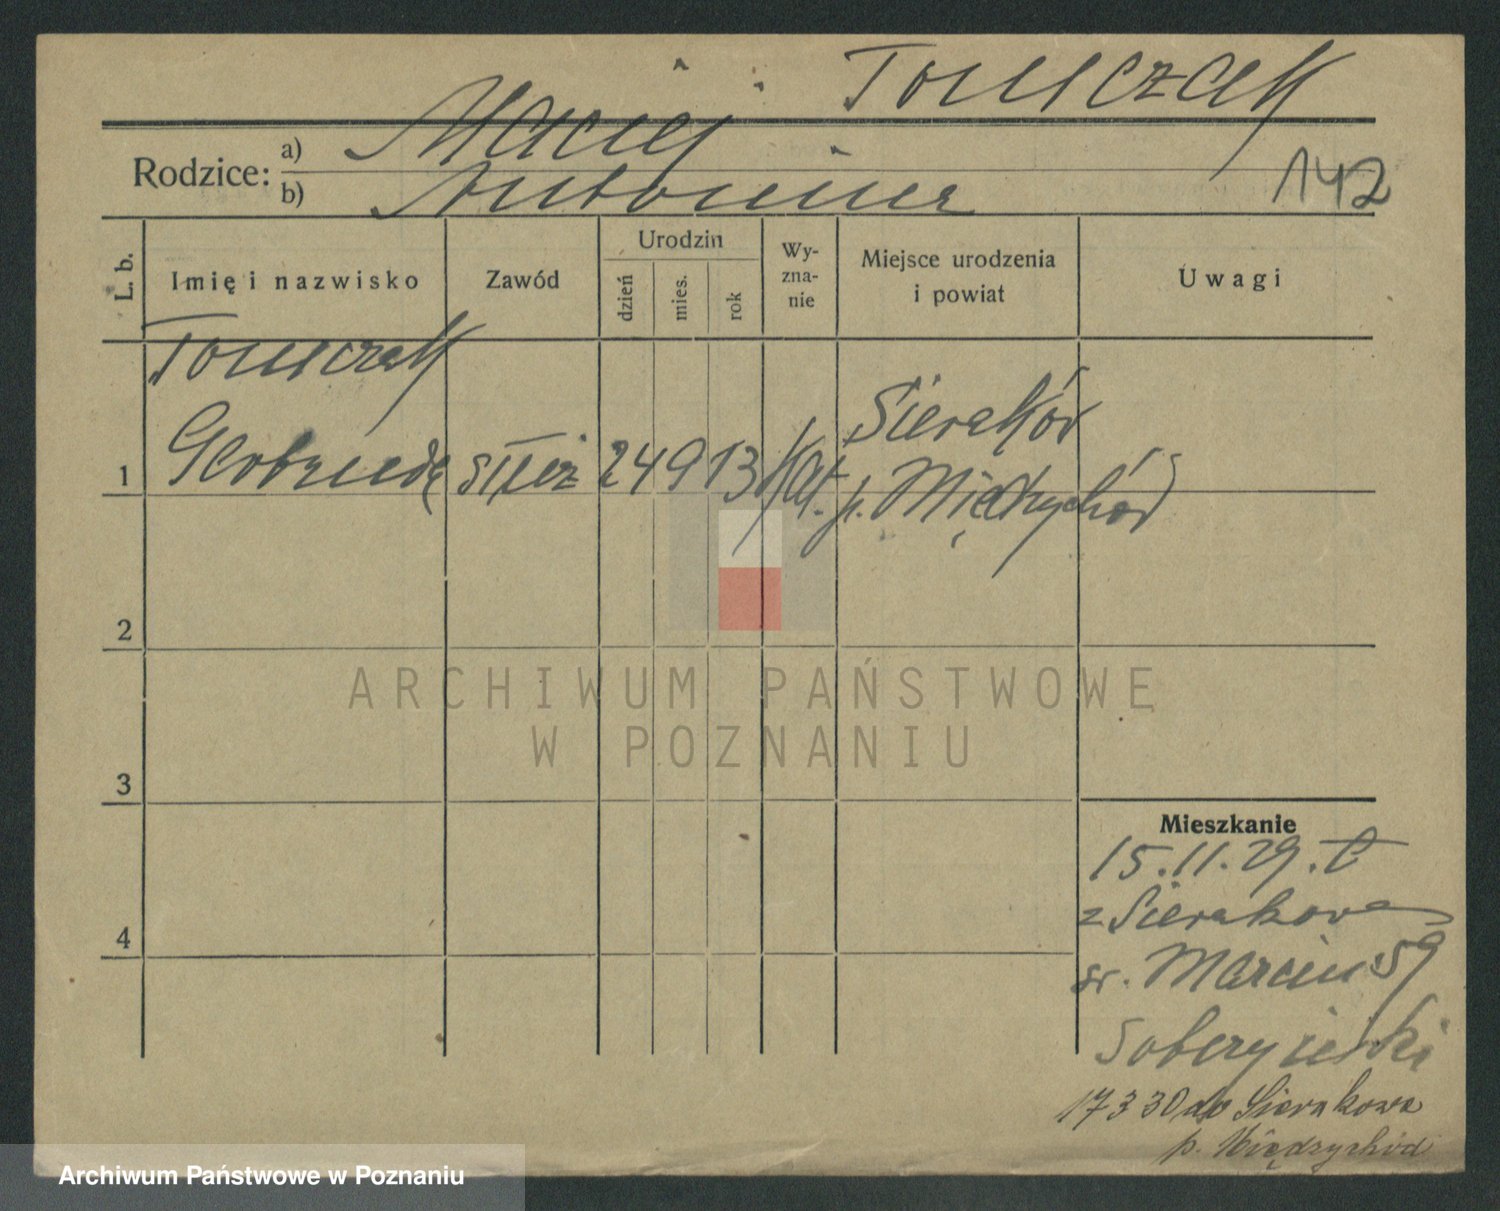 Tomczak
Rodzice: a) Maciej
b) Antonina
142
L. b.
Imię i nazwisko
Zawód
Urodzin
dzień
mies.
rok
Wy-
zna-
nie
Miejsce urodzenia
i powiat
Uwagi
Tomczak
1
służ
24 9 13
kat.
Sieraków
p. Międzychód
2
ARCHIWUM PAŃSTWOWE
W POZNANIU
3
Mieszkanie
15.11.29.
z Sierakowa
4
św. Marcin 59
17 3 30 do Sierakowa
p. Międzychód
Archiwum Państwowe w Poznaniu